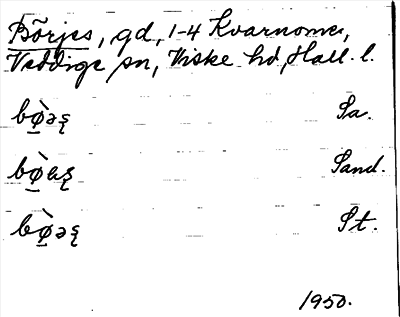 Börjes, gd, 1-4 Kvarnome,
Veddige sn, Viske hd, Hall. l.
bø̠̀əş Sa.
bø̠̀aş Sand.
bø̠̀əş St.
1950.